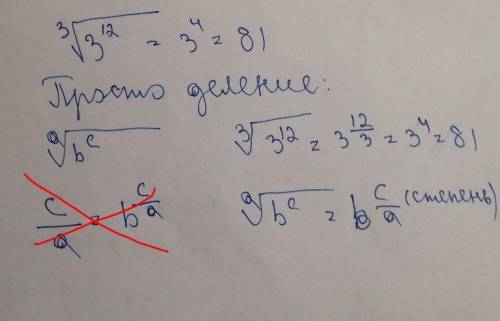 ∛3¹² = 3⁴ = 81
Просто деление:
ᵃ√bᶜ
∛3¹² = 3^(12/3) = 3⁴ = 81
c/a = b^(c/a)
ᵃ√bᶜ = b^(c/a) (степень)